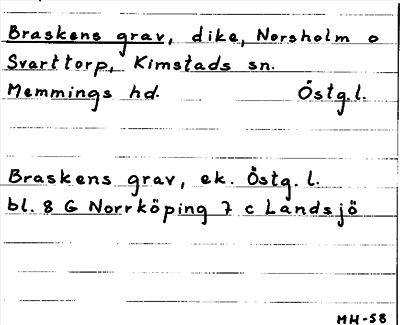 Braskens grav, dike, Norsholm o
Svarttorp, Kimstads sn.
Memmings hd. Östg.l.
Braskens grav, ek. Östg. l.
bl. 8 G Norrköping 7 c Landsjö
MH-58